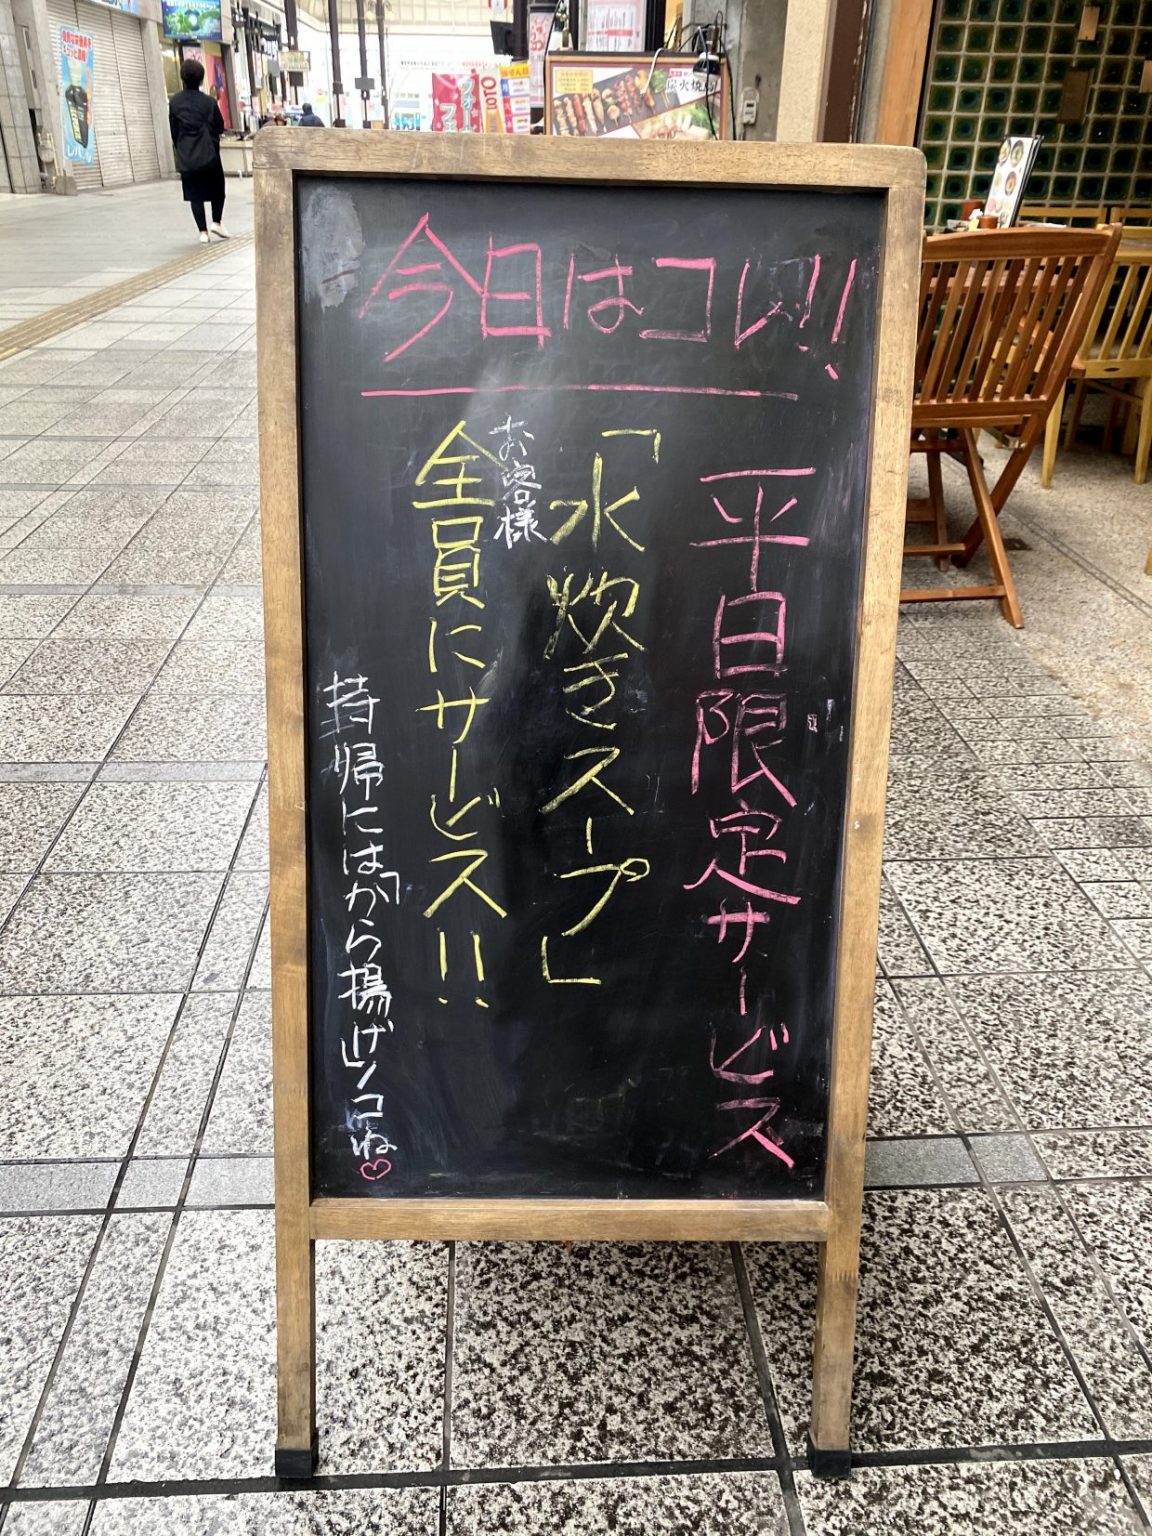 今日はコレ!!
平日限定サービス
「水炊きスープ」
お客様
全員にサービス!!
持帰には「から揚げ」ソコにね♡
炭火焼鳥
TOTO